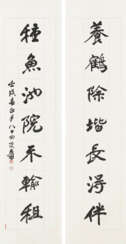 養鶴除堦長得伴
種魚池院不輸租